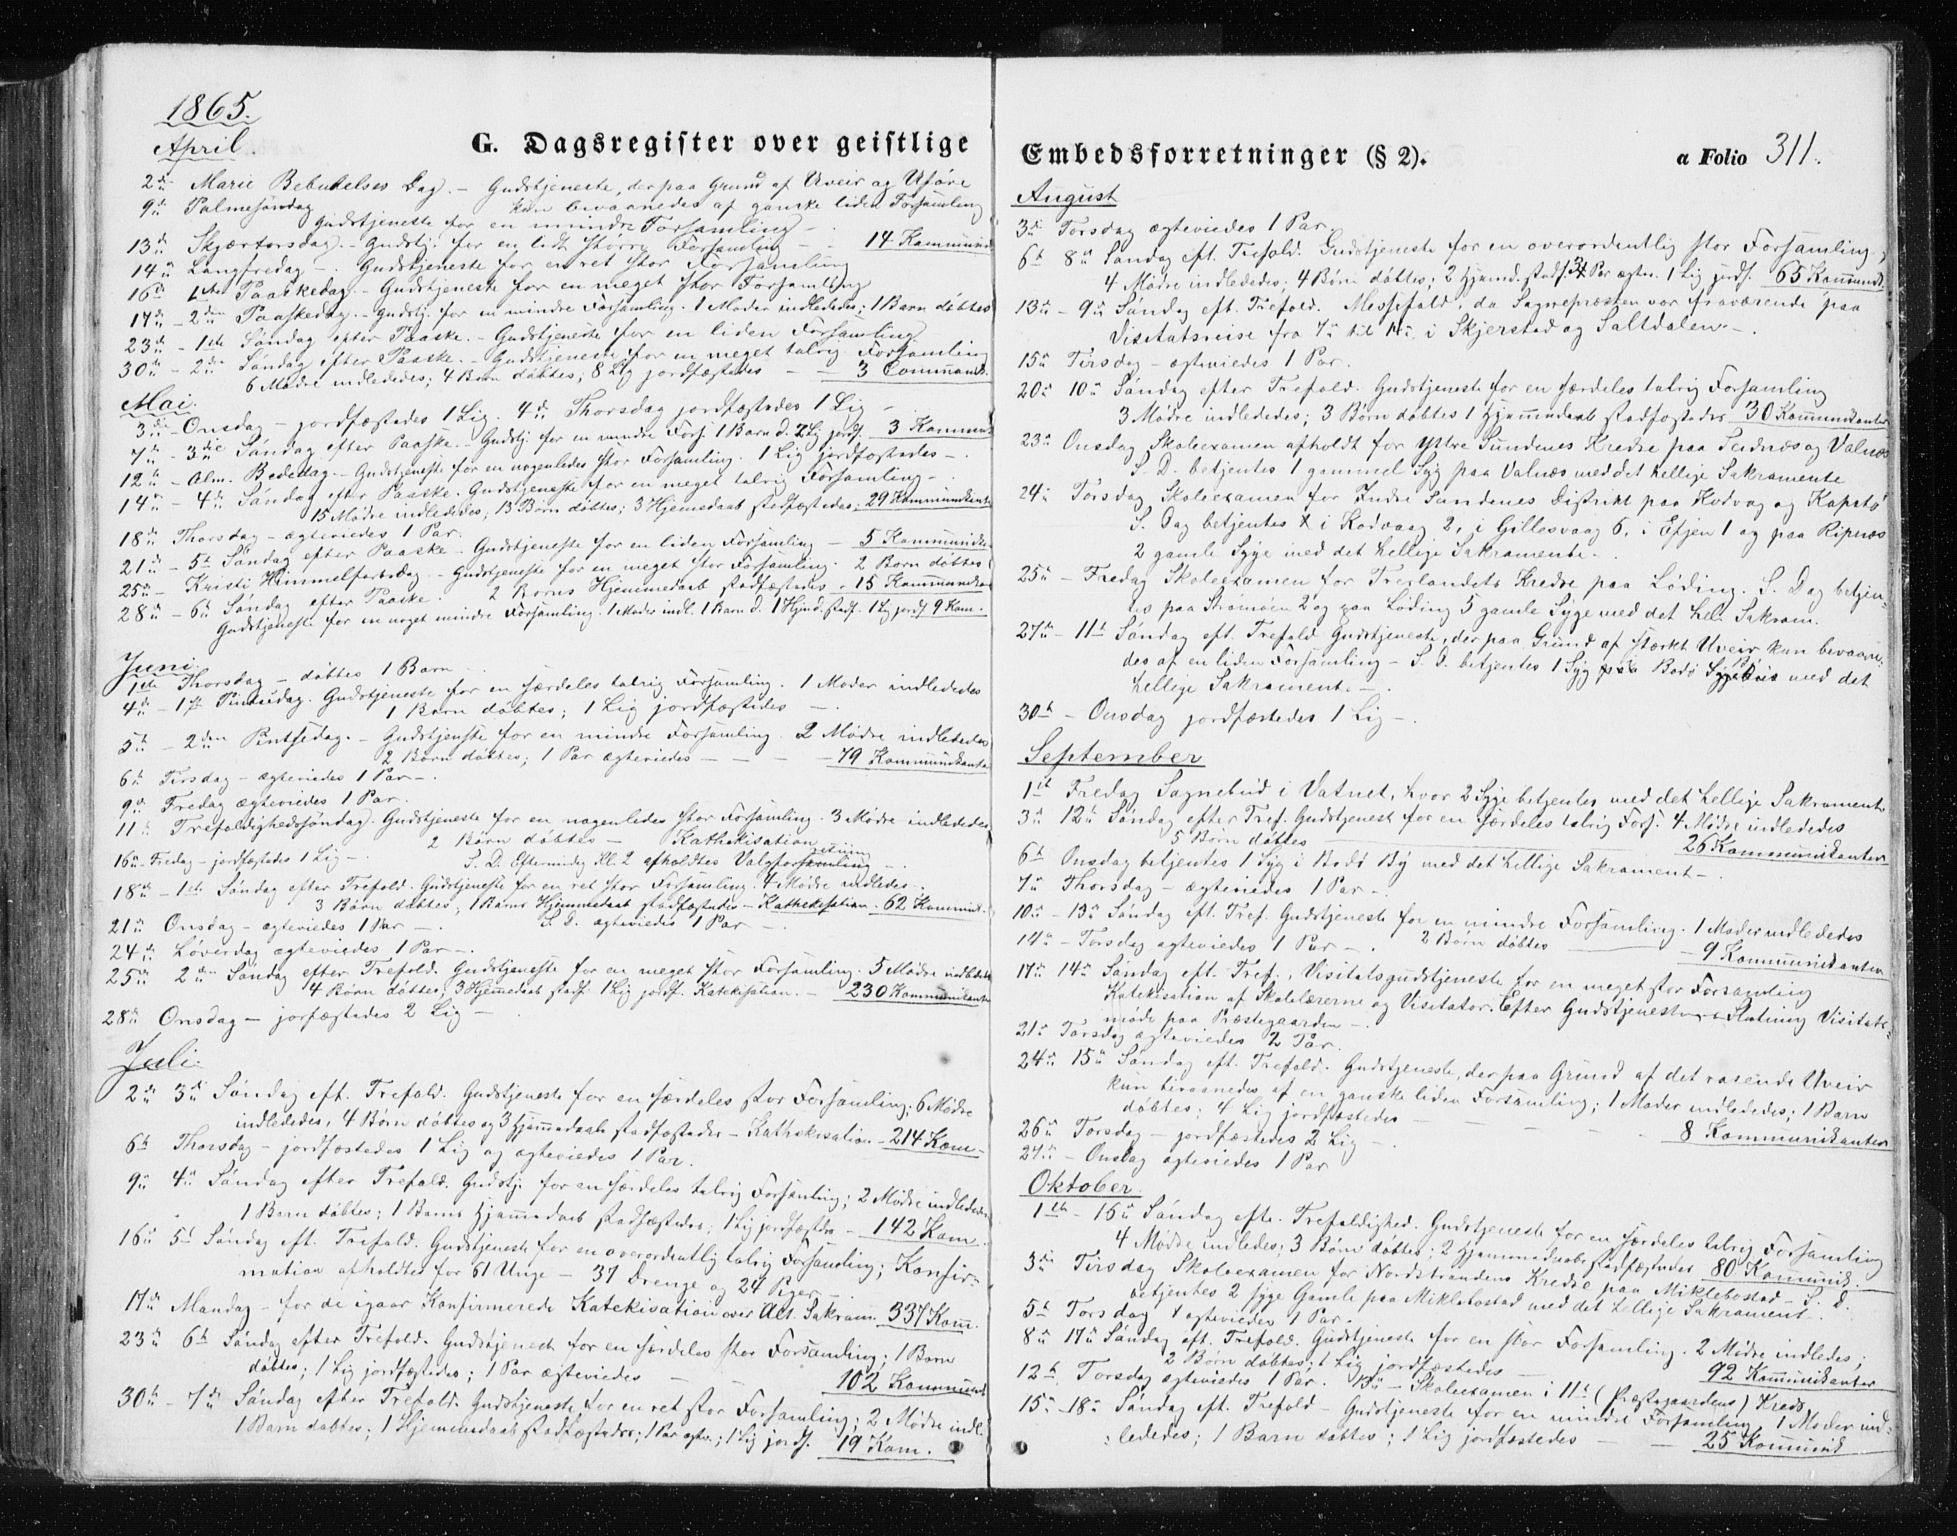 1865.
April.
G. Dagsregister over geistlige
2den Marie Bebudelses Dag. – Gudstjeneste, der paa Grund af Uveir og Uføre
9de Palmesøndag kun bivaanedes af ganske liden Forsamling
Gudstjeneste for en mindre Forsamling –
13de Skjærtorsdag. – Gudstj. for en lidt større Forsamling – – 14 Kommunik.
14de Langfredag – . Gudstjeneste for en ret stor Forsamling
16de 1ste Paaskedag. – Gudstjeneste for en meget stor Forsamling
17de – 2den Paaskedag. – Gudstj. for en mindre Forsamling. 1 Moder indlededes; 1 Barn døbtes
23de – 1ste Søndag efter Paaske. – Gudstjeneste for en liden Forsamling
30te – 2den Søndag efter Paaske. – Gudstjeneste for en meget talrig Forsamling
6 Mødre indlededes; 4 Børn døbtes; 8 Lig jordfæstedes – – 3 Communik.
Mai.
3die – Onsdag – jordfæstedes 1 Lig. 4de Thorsdag jordfæstedes 1 Lig –
7de – 3die Søndag efter Paaske. – Gudstj. for en mindre Fors. 1 Barn d. 2 Lig jordf. 3 Kommun.
12te – Alm. Bededag. – Gudstjeneste for en nogenledes stor Forsamling. 1 Lig jordfæstedes –
14de – 4de Søndag efter Paaske. Gudstjeneste for en meget talrig Forsamling –
15 Mødre indlededes; 13 Børn døbtes; 3 Hjemmedaab stadfæstedes; 29 Kommunikanter
18de Thorsdag – ægteviedes 1 Par.
21de – 5te Søndag efter Paaske – Gudstjeneste for en liden Forsamling – 5 Kommunik.
25de – Kristi Himmelfartsdag. – Gudstjeneste for en meget stor Forsamling. 2 Børn døbtes
2 Børns Hjemmedaab stadfæstedes – 15 Kommunikan.
28de – 6te Søndag efter Paaske.
Gudstjeneste for en noget mindre Forsamling. 1 Moder indl. 1 Barn d. 1 Hjmd. stadf. 1 Lig jordf 9 Kom.
Juni.
1ste Thorsdag – døbtes 1 Barn –
4de – 1ste Pintsedag. Gudstjeneste for en særdeles talrig Forsamling. 1 Moder indlededes
1 Barn døbtes; 1 Lig jordfæstedes –
5te – 2den Pintsedag. – Gudstjeneste for en mindre Forsamling. 2 Mødre indlededes
2 Børn døbtes; 1 Par ægteviedes – – – – 79 Kommunikanter
6te Tirsdag – ægteviedes 1 Par – .
9de Fredag ægteviedes 1 Par.
11te Trefoldighedssøndag. Gudstjeneste for en nogenledes stor Forsamling. 3 Mødre indlededes
2 Børn døbtes – Kathekisation
16de Fredag – jordfæstedes 1 Lig – . S. D. Eftermiddag Kl. 2 afholdtes Valgforsamling –
18de – 1ste Søndag efter Trefold. Gudstjeneste for en ret stor Forsamling. 4 Mødre indledes.
3 Børn døbtes; 1 Barns Hjemmedaab stadfæstedes – Kathekisation. 62 Kommunik.
21de Onsdag – ægteviedes 1 Par – . S. D. ægteviedes 1 Par –
24de Løverdag ægteviedes 1 Par – .
25de 2den Søndag efter Trefold. Gudstjeneste for en meget stor Forsamling. 5 Mødre indledede
4 Børn døbtes, 3 Hjemmedaab stadf. 1 Lig jordf. Katekisation. – 230 Kommunikanter
28de Onsdag – jorfæstedes 2 Lig –
Juli.
2den 3die Søndag eft. Trefold. Gudstjeneste for en særdeles stor Forsamling; 6 Mødre
indlededes, 4 Børn døbtes og 3 Hjemmedaab stadfæstedes – Kathekisation – 214 Kom –
6te Thorsdag – jordfæstedes 1 Lig og ægteviedes 1 Par.
9de 4de Søndag efter Trefold. Gudstj. for en særdeles talrig Forsamling; 2 Mødre indlededes
1 Barn døbtes; 1 Barns Hjemmedaab stadfæstedes; 1 Lig jordfæstdes – 142 Kom.
16de 5te Søndag eft. Trefold. Gudstjeneste for en overordentlig talrig Forsamling; Konfir-
mation afholdtes for 61 Unge – 37 Drenge og 24 Piger –
17de Mandag – for de igaar Konfirmerede Katekisation over Alt. Sakram. 337 Kom.
23de 6te Søndag efter Trefold. Gudstjenest for en særdeles stor Forsamling; 1 Barn
døbtes; 1 Lig jordfæstedes; 1 Par ægteviedes – – 102 Kommunik
30te – 7de Søndag efter Trefold. Gudstjeneste for en ret stor Forsamling; 2 Mødre indl.
1 Barn døbtes; 1 Hjemmedaab stadfæstedes; 1 Par ægtv.; 1 Lig jordf. 19 Kom.
Embedsforretninger (§ 2).
a Folio 311.
August
3die Torsdag ægteviedes 1 Par
6te 8de Søndag eft. Trefold. Gudstjeneste for en overordentlig stor Forsamling;
4 Mødre indlededes; 4 Børn døbtes; 2 Hjemd. stadf. Par ægtv. 1 Lig jordf. 65 Kommunik.
13de – 9de Søndag eft. Trefold. Messefald, da Sognepræsten var fraværende paa
Visitatsreise fra 7de til i Skjerstad og Saltdalen. – .
15de Tirsdag – ægteviedes 1 Par.
20de 10de Søndag efter Trefold. Gudstjeneste for en særdeles talrig Forsamling
3 Mødre indlededes; 3 Børn døbtes 1 Hjemmedaab stadfæstedes 30 Kommunikanter
23de Onsdag Skoleexamen afholdt for Ystre Sundenes Kredse paa Seidnæs og Valnæs
S. D. betjentes 1 gammel Syg paa Valnæs med det hellige Sakramente
24de Torsdag Skoleexamen for Indre Sundenes Distrikt paa Kodvag og Kapstø
S. Dag betjentes i Kodvaag 2, i Gillesvaag 6, i Efjen 1 og paa Ripnæs
2 gamle Syge med det hellige Sakramente – .
25de – Fredag Skoleexamen for Treilandets Kredse paa Løding. S. Dag betjen-
tes paa Strømøen 2 og paa Løding 5 gamle Syge med det hell. Sakram.
27de – 11te Søndag eft. Trefold Gudstjeneste, der paa Grund af stærkt Uveir kun bevaane-
des af en liden Forsamling – S. D. betjentes 1 Syg Bodø med det
hellige Sakrament. –
30te – Onsdag jordfæstedes 1 Lig – .
September
1ste Fredag Sognebud i Vatnet, hvor 2 Syge betjentes med det hellige Sakramente
3die 12te Søndag efter Tref. Gudstjeneste for en særdeles talrig Fors. 4 Mødre indlededes
5 Børn døbtes 26 Kommunikanter
6te Onsdag betjentes 1 Syg i Bodø By med det hellige Sakrament – .
7de Thorsdag – ægteviedes 1 Par – .
10de – 13de Søndag eft. Tref. Gudstjeneste for en mindre Forsamling. 1 Moder indlededes
14de – Torsdag ægteviedes 1 Par – . 2 Børn døbtes – 9 Kommunikanter
17de 14de Søndag eft. Tref., Visitatsgudstjeneste for en meget stor Forsamling
Katekisation af Skolelærerne og Visitator. Efter Gudstjenestens Slutning Visitats-
møde paa Præstegaarden – .
21de Torsdag ægteviedes 2 Par.
24de 15de Søndag eft. Trefold. Gudstjeneste, der paa Grund af det rasende Uveir
kun bivaanedes af en ganske liden Forsamling; 1 Moder indlededes; 1 Barn
døbtes; 4 Lig jordfæstedes – – – – – 8 Kommunikanter
26de Torsdag – jordfæstedes 2 Lig – .
27de – Onsdag ægteviedes 1 Par
Oktober
1ste – 16de Søndag efte. Trefoldighed. Gudstjeneste for en særdeles talrig Forsamling
4 Mødre indledes; 3 Børn døbtes; 2 Hjemmedaabe stadfæstedes 80 Kommunik.
3die Tirsdag Skoleexamen for Nordstrandens Kredse paa Miklebostad S. D.
betjentes 2 syge Gamle paa Miklebostad med det hellige Sakrament.
5te Torsdag ægteviedes 1 Par.
8de 17de Søndag eft. Trefold. Gudstjeneste for en stor Forsamling. 2 Mødre indledes;
2 Børn døbtes; 1 Lig jordfæstedes – 92 Kommunikanter
12te Torsdag ægteviedes 1 Par. 13de – Skoleexamen i 11te (Præstegaardens) Kreds
15de – 18de Søndag eft. Trefold – Gudstjeneste for en mindre Forsamling 1 Moder ind-
lededes; 1 Barn døbtes; 1 Lig jordfæstedes – 25 Kommunik